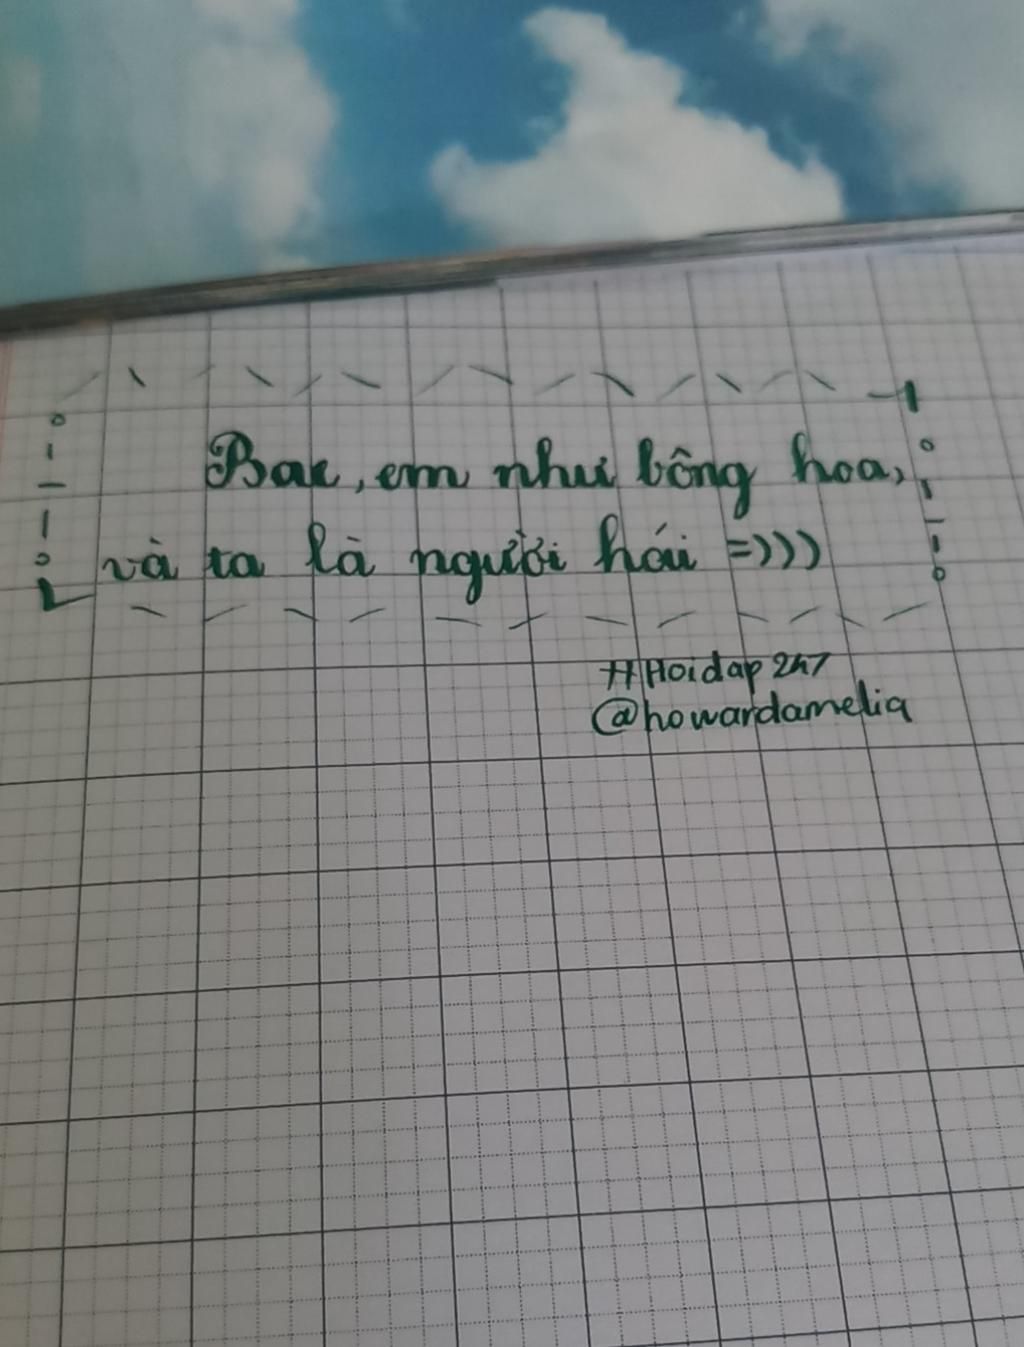 Bae, em như bông hoa,
và ta là người hái =)))
#Hoidap247
@howardamelia